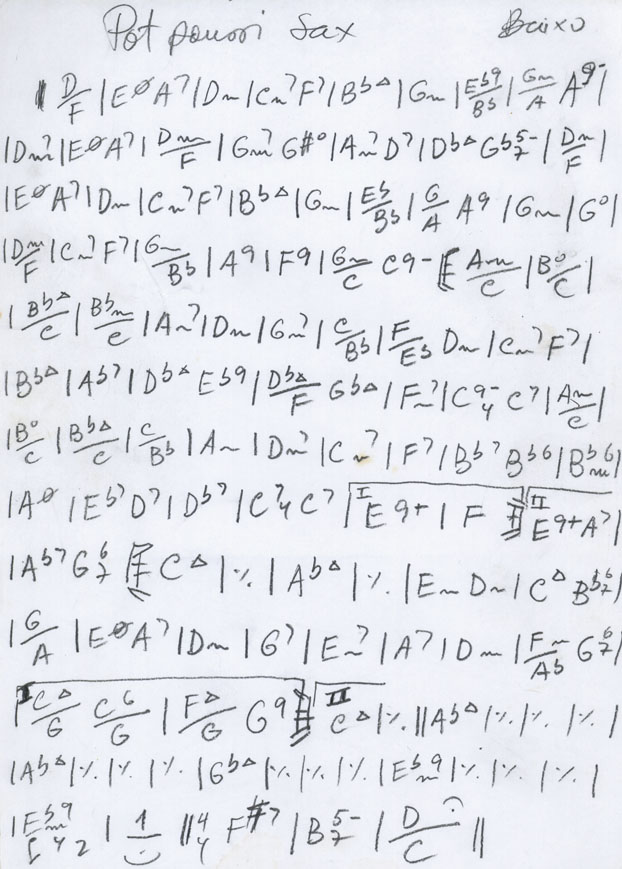 Pot pourri Sax Baixo
| D/F | Eø A7 | Dm | Cm7 F7 | BbΔ | Gm | Eb9/Bb | Gm/A A9- |
| Dm7 | Eø A7 | Dm/F | Gm7 G#° | Am7 D7 | DbΔ Gb5-7 | Dm/F |
| Eø A7 | Dm | Cm7 F7 | BbΔ | Gm | Eb/Bb | G/A A9 | Gm | G° |
| Dm/F | Cm7 F7 | Gm/Bb | A9 | F9 | Gm/C C9- [: Am/C | B°/C |
| BbΔ/C | Bbm/C | Am7 | Dm | Gm7 | C/Bb | F/Eb Dm | Cm7 F7 |
| BbΔ | Ab7 | DbΔ Eb9 | DbΔ/F GbΔ | Fm7 | C9-4 C7 | Am/C |
| B°/C | BbΔ/C | C/Bb | Am | Dm7 | Cm7 | F7 | Bb7 Bb6 | Bbm6 |
| Aø | Eb7 D7 | Db7 | C74 C7 | I E9+ | F :| II E9+ A7 |
| Ab7 G67 [: CΔ | % | AbΔ | % | Em Dm | CΔ Bb67 |
| G/A | Eø A7 | Dm | G7 | Em7 | A7 | Dm | Fm/Ab G67 |
| I CΔ/G C6/G | FΔ/G G9 :| II CΔ | % || AbΔ | % | % | % |
| AbΔ | % | % | % | GbΔ | % | % | % | Ebm9 | % | % | % |
| Ebm9 [ 4 2 | 1 || 44 F#7 | B5-7 | D/C ||